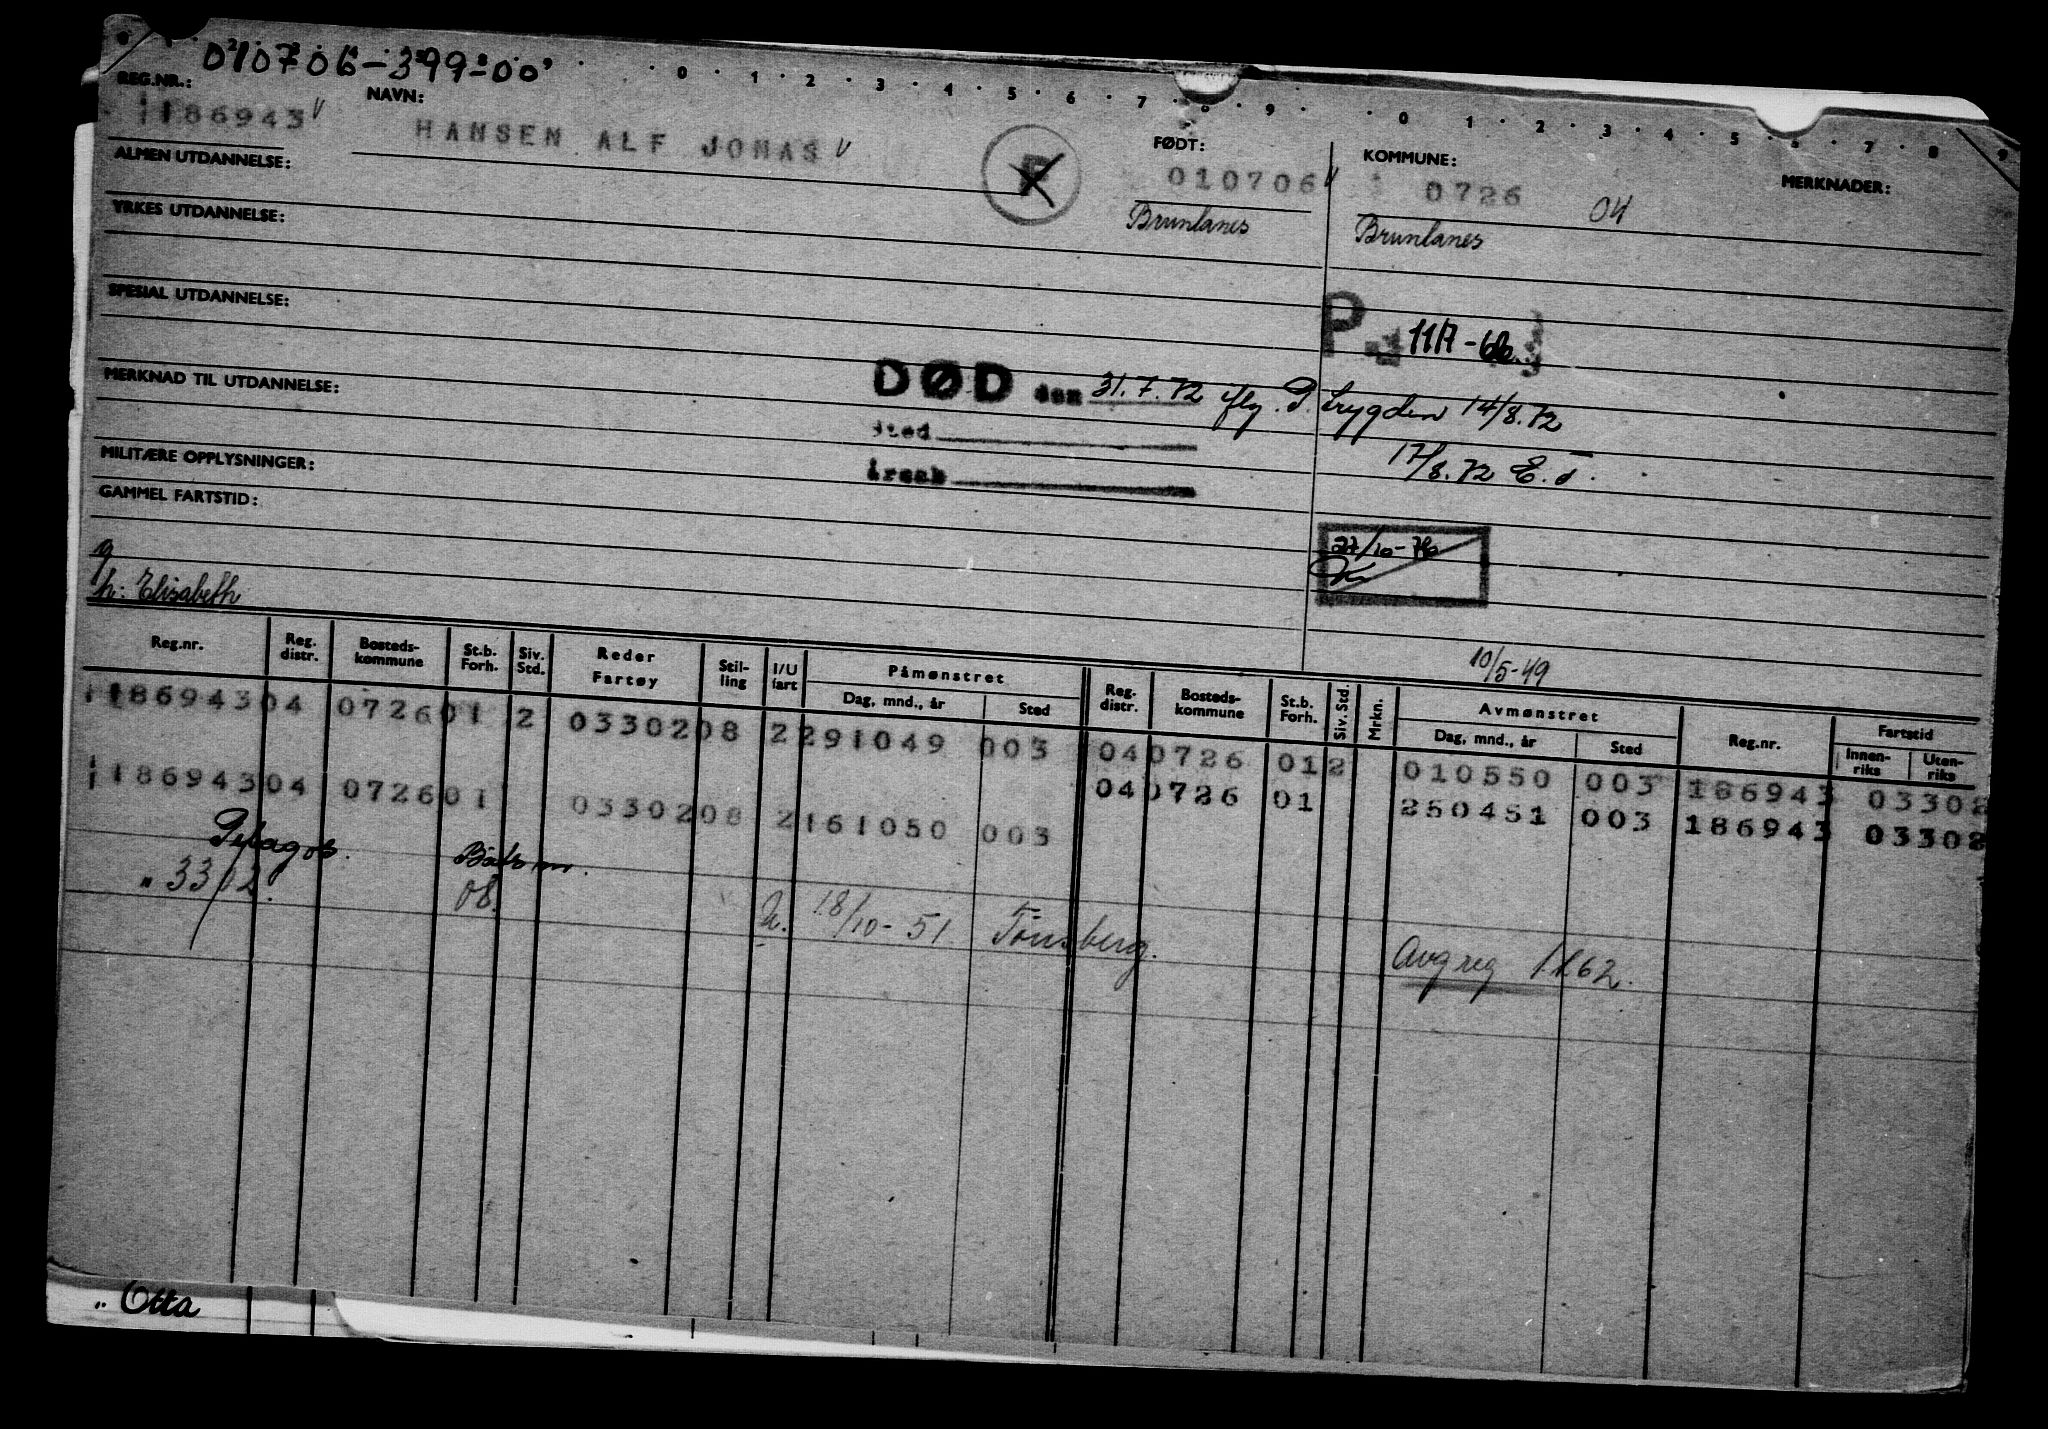 010706-399-00
0 1 2 3 4 5 6 7 8 9 0 1 2 3 4 5 6 7 8 9
REG.NR.: NAVN: FØDT: KOMMUNE: MERKNADER:
186943 HANSEN ALF JONAS 010706 0726 04
Brunlanes Brunlanes
ALMEN UTDANNELSE:
YRKES UTDANNELSE:
SPESIAL UTDANNELSE:
P. 11/7-66
MERKNAD TIL UTDANNELSE:
DØD den 31.7.72 iflg. P. trygden 14/8.72
Sted
17/8.72 E.
Årsak
MILITÆRE OPPLYSNINGER:
GAMMEL FARTSTID:
27/10-76
g
h: Elisabeth
10/5-49
Reg.nr. Reg. distr. Bosteds-kommune St.b. Forh. Siv. Std. Reder Fartøy Stil-ling I/U fart Påmønstret Dag, mnd., år Sted Reg. distr. Bosteds-kommune St.b. Forh. Siv. Std. Mrkn. Avmønstret Dag, mnd., år Sted Reg.nr. Fartstid Innen-riks Uten-riks
186943 04 0726 01 2 03302 08 2 291049 003 04 0726 01 2 010550 003 186943 03302
186943 04 0726 01 03302 08 2 161050 003 04 0726 01 250451 003 186943 03302
Pelagos. Båtsm.
" 3302. 08. U. 18/10-51 Tønsberg. Avg reg 1.1.62.
" Otta